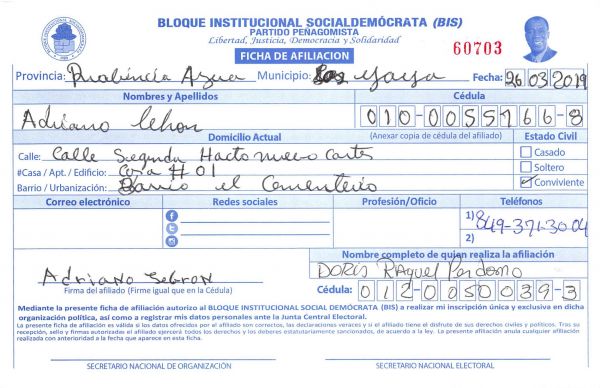 BLOQUE INSTITUCIONAL SOCIALDEMÓCRATA (BIS)
PARTIDO PEÑAGOMISTA
Libertad, Justicia, Democracia y Solidaridad
FICHA DE AFILIACION
60703
Provincia: Probincia Azua Municipio: Las Yaya Fecha: 26 03 2019
Nombres y Apellidos Cédula
Adriano Lebron 010-0055766-8
Domicilio Actual (Anexar copia de cédula del afiliado) Estado Civil
Calle: Calle Segunda Hacto nuevo cortes Casado
#Casa / Apt. / Edificio: Casa # 01 Soltero
Barrio / Urbanización: Barrio el Cementerio Conviviente
Correo electrónico Redes sociales Profesión/Oficio Teléfonos
1) 849-371-3004
2)
Nombre completo de quien realiza la afiliación
Adriano Lebron Doris Raquel Perdomo
Firma del afiliado (Firme igual que en la Cédula) Cédula: 012-0050039-3
Mediante la presente ficha de afiliación autorizo al BLOQUE INSTITUCIONAL SOCIAL DEMÓCRATA (BIS) a realizar mi inscripción única y exclusiva en dicha
organización política, así como a registrar mis datos personales ante la Junta Central Electoral.
La presente ficha de afiliación es válida si los datos ofrecidos por el afiliado son correctos, las declaraciones veraces y si el afiliado tiene el disfrute de sus derechos civiles y políticos. Tras su
recepción, sello y firmas autorizadas el afiliado ejercerá todos los derechos y los deberes estatutariamente sancionados, de acuerdo a la ley. La presente afiliación anula cualquier afiliación
realizada con anterioridad a la fecha que aparece en esta ficha.
SECRETARIO NACIONAL DE ORGANIZACIÓN SECRETARIO NACIONAL ELECTORAL